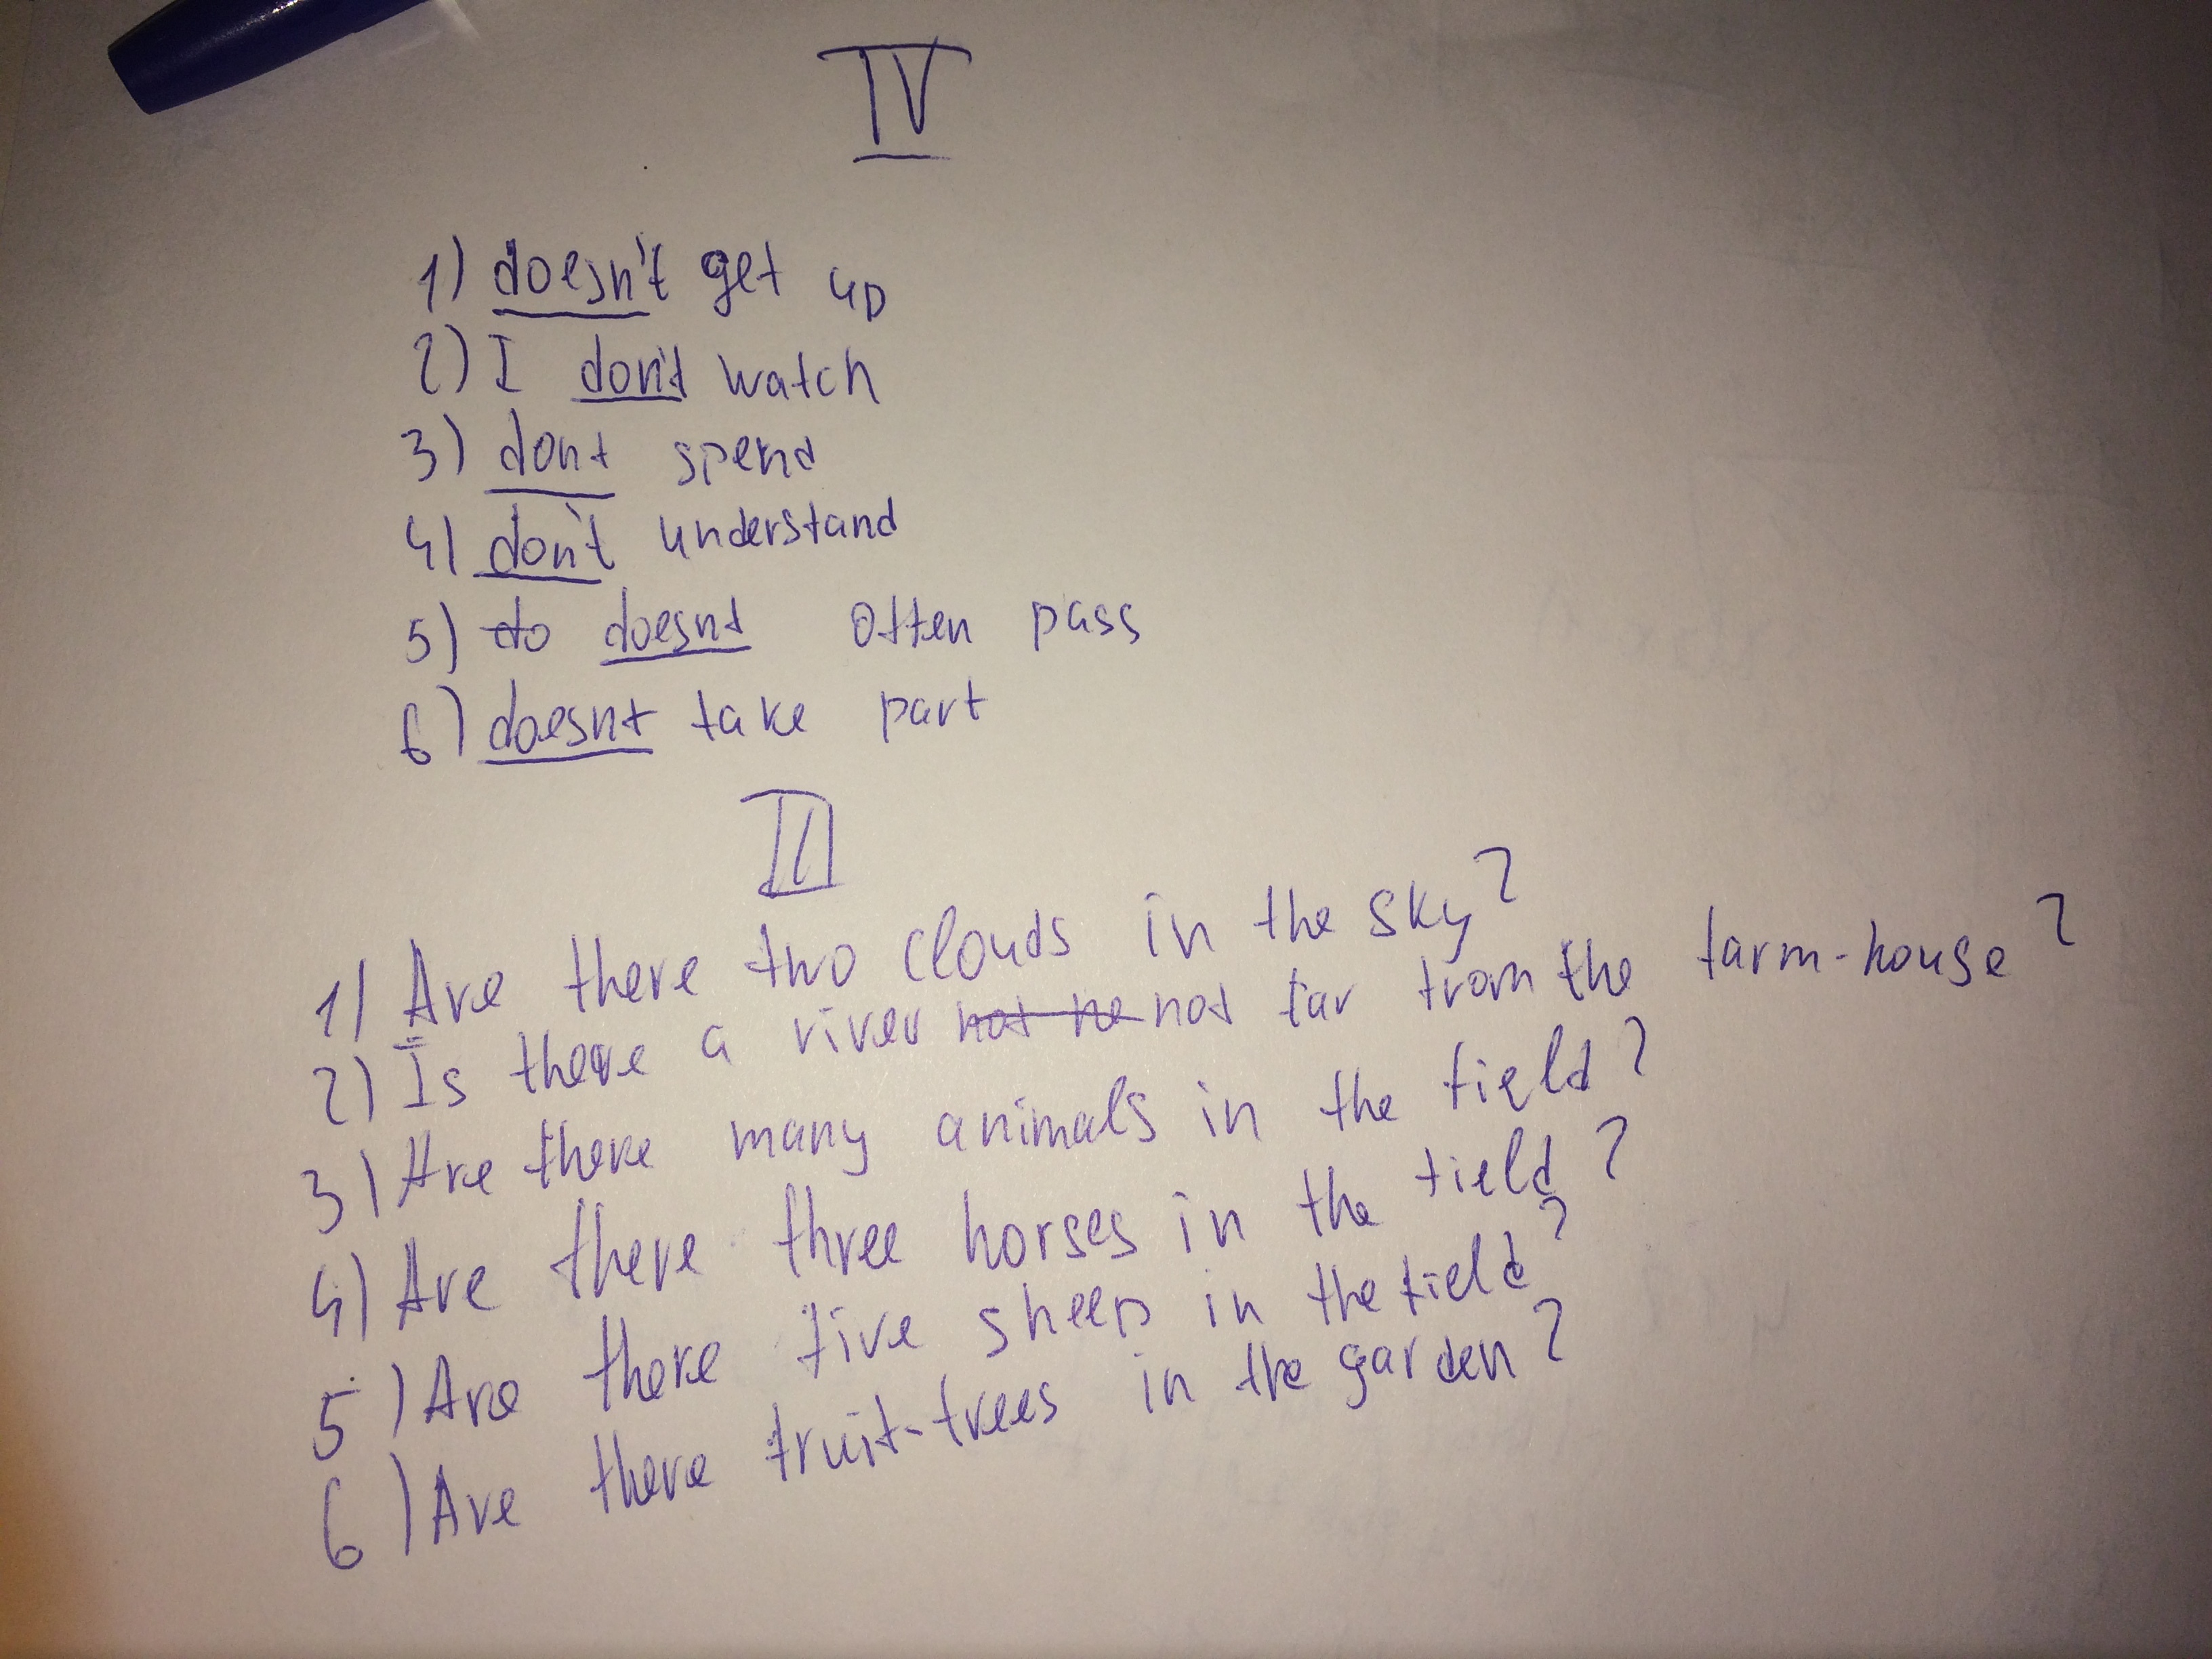 IV
1) doesn't get up
2) I don't watch
3) dont spend
4) don't understand
5) do doesnt often pass
6) doesnt take part
III
1) Are there two clouds in the sky?
2) Is there a river not he not far from the farm-house?
3) Are there many animals in the field?
4) Are there three horses in the field?
5) Are there five sheep in the field?
6) Are there fruit-trees in the garden?